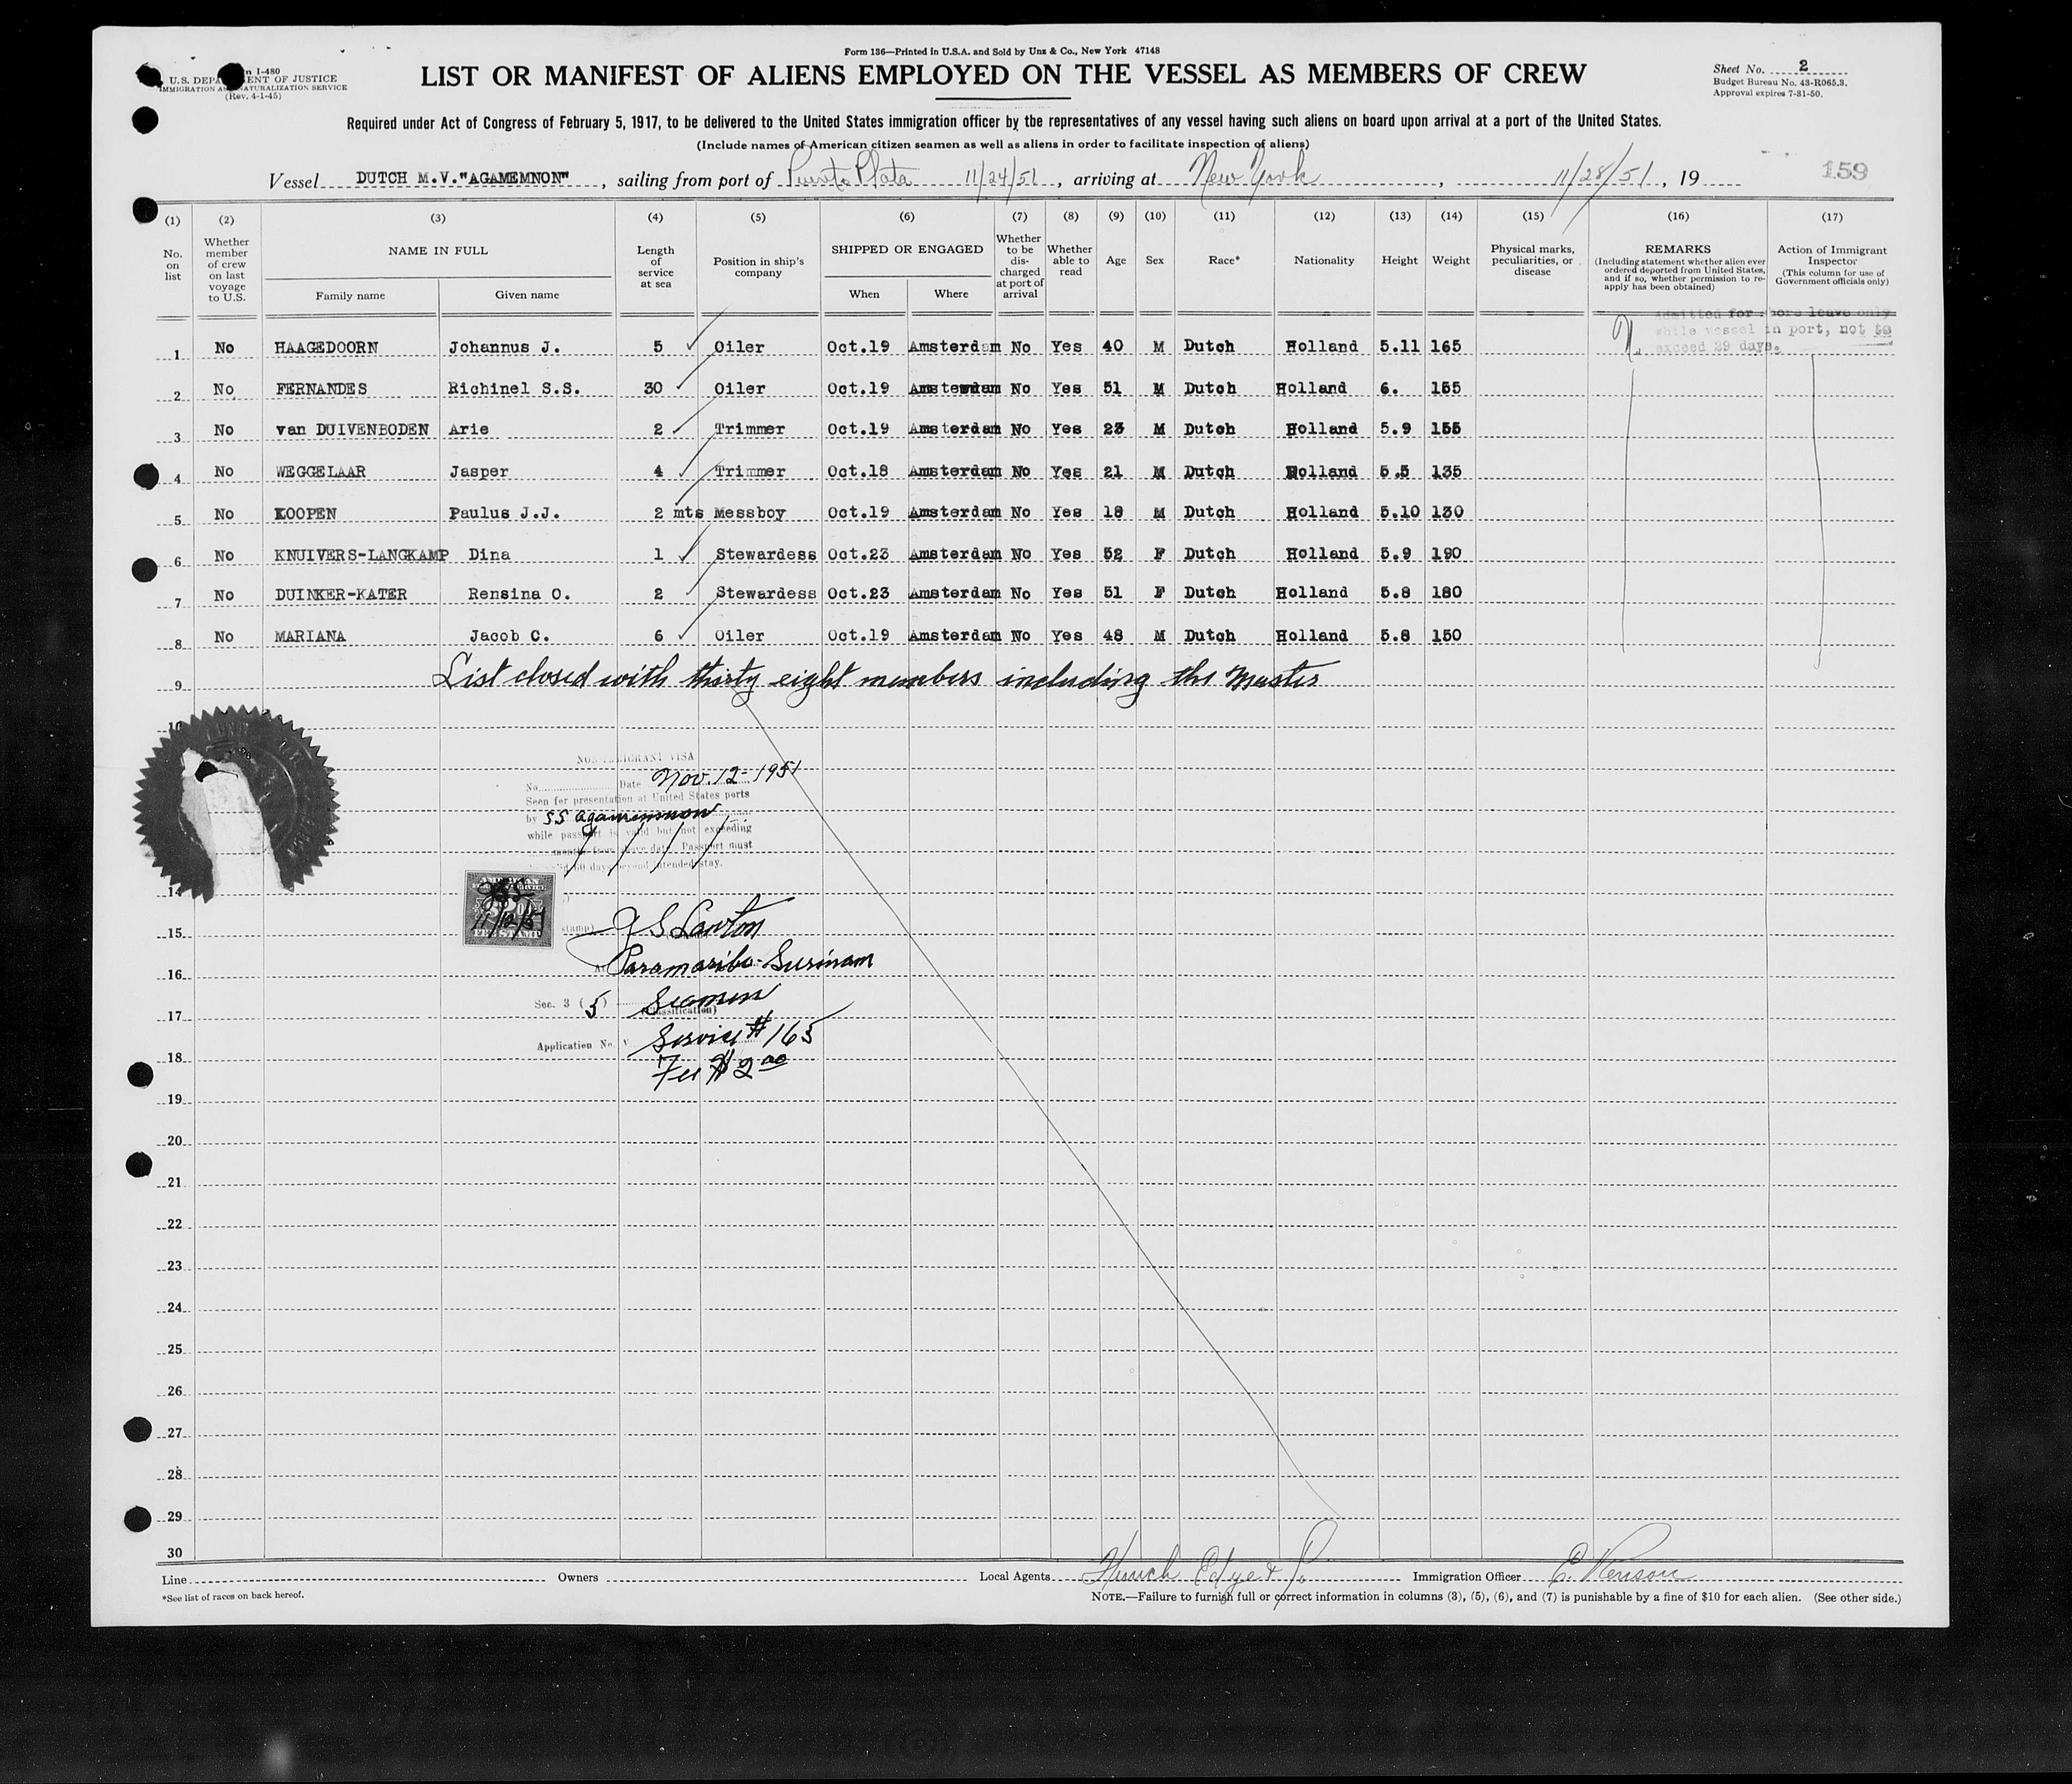 Form 136—Printed in U.S.A. and Sold by Unz & Co., New York 47148
I-480
U.S. DEPARTMENT OF JUSTICE
IMMIGRATION AND NATURALIZATION SERVICE
(Rev. 4-1-45)
LIST OR MANIFEST OF ALIENS EMPLOYED ON THE VESSEL AS MEMBERS OF CREW
Sheet No. 2
Budget Bureau No. 43-R065.3.
Approval expires 7-31-50.
Required under Act of Congress of February 5, 1917, to be delivered to the United States immigration officer by the representatives of any vessel having such aliens on board upon arrival at a port of the United States.
(Include names of American citizen seamen as well as aliens in order to facilitate inspection of aliens)
Vessel DUTCH M.V."AGAMEMNON", sailing from port of Puerto Plata 11/24/51, arriving at New York, 11/28/51, 19
159
(1) (2) (3) (4) (5) (6) (7) (8) (9) (10) (11) (12) (13) (14) (15) (16) (17)
No. on list
Whether member of crew on last voyage to U.S.
NAME IN FULL
Family name
Given name
Length of service at sea
Position in ship's company
SHIPPED OR ENGAGED
When
Where
Whether to be discharged at port of arrival
Whether able to read
Age
Sex
Race*
Nationality
Height
Weight
Physical marks, peculiarities, or disease
REMARKS
(Including statement whether alien ever ordered deported from United States, and if so, whether permission to reapply has been obtained)
Action of Immigrant Inspector
(This column for use of Government officials only)
Admitted for shore leave only
while vessel in port, not to
exceed 29 days.
1 No HAAGEDOORN Johannus J. 5 Oiler Oct.19 Amsterdam No Yes 40 M Dutch Holland 5.11 165
2 No FERNANDES Richinel S.S. 30 Oiler Oct.19 Amsterdam No Yes 51 M Dutch Holland 6. 155
3 No van DUIVENBODEN Arie 2 Trimmer Oct.19 Amsterdam No Yes 23 M Dutch Holland 5.9 155
4 No WEGGELAAR Jasper 4 Trimmer Oct.18 Amsterdam No Yes 21 M Dutch Holland 5.5 135
5 No KOOPEN Paulus J.J. 2 mts Messboy Oct.19 Amsterdam No Yes 18 M Dutch Holland 5.10 130
6 No KNUIVERS-LANGKAMP Dina 1 Stewardess Oct.23 Amsterdam No Yes 52 F Dutch Holland 5.9 190
7 No DUINKER-KATER Rensina O. 2 Stewardess Oct.23 Amsterdam No Yes 51 F Dutch Holland 5.8 180
8 No MARIANA Jacob C. 6 Oiler Oct.19 Amsterdam No Yes 48 M Dutch Holland 5.8 150
9 List closed with thirty eight members including the Master
10
NON IMMIGRANT VISA
No. Date Nov. 12-1951
Seen for presentation at United States ports
by SS Agamemnon
while passport is valid but not exceeding
months from above date. Passport must
valid 60 days beyond intended stay.
14
AMERICAN
FEE STAMP
11/12/51
15 J S Lawton
At Paramaribo-Surinam
16
Sec. 3 (5) Seamen
(Classification)
17
Application No. V Service # 165
18 Fee $2.00
19
20
21
22
23
24
25
26
27
28
29
30
Line Owners Local Agents Funch Edye & Co. Immigration Officer
*See list of races on back hereof.
NOTE.—Failure to furnish full or correct information in columns (3), (5), (6), and (7) is punishable by a fine of $10 for each alien. (See other side.)